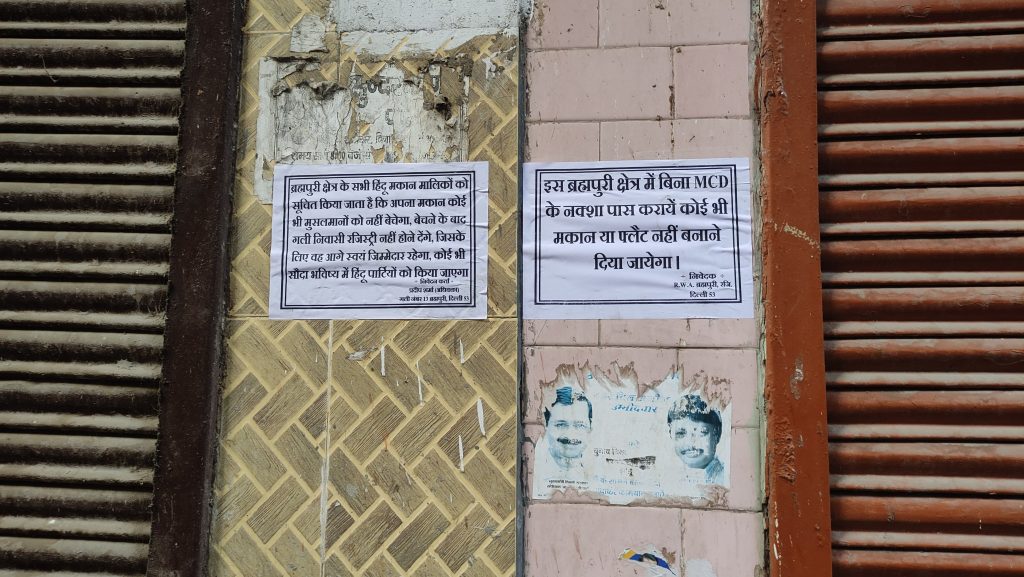 समय सायं 8:00 बजे
ब्रह्मपुरी क्षेत्र के सभी हिंदू मकान मालिकों को
सूचित किया जाता है कि अपना मकान कोई
भी मुसलमानों को नहीं बेचेगा, बेचने के बाद
गली निवासी रजिस्ट्री नहीं होने देंगे, जिसके
लिए वह आगे स्वयं जिम्मेदार रहेगा, कोई भी
सौदा भविष्य में हिंदू पार्टियों को किया जाएगा
- निवेदन कर्ता -
प्रदीप शर्मा (अधिवक्ता)
गली नंबर 13 ब्रह्मपुरी, दिल्ली 53
इस ब्रह्मपुरी क्षेत्र में बिना MCD
के नक्शा पास करायें कोई भी
मकान या फ्लैट नहीं बनाने
दिया जायेगा।
- निवेदक -
R.W.A. ब्रह्मपुरी, रजि.
दिल्ली 53
उम्मीदवार
चुनाव चिन्ह